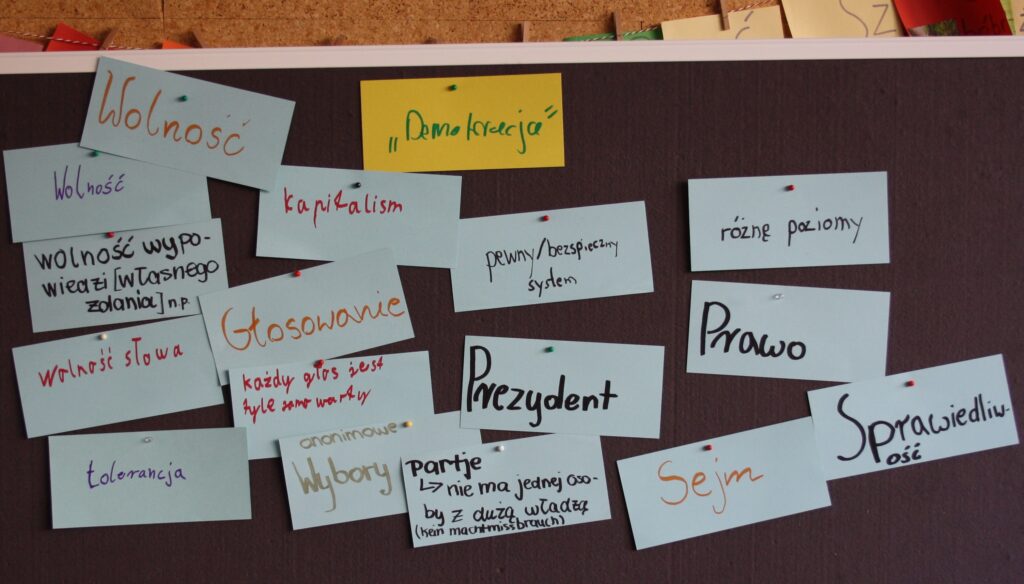 Wolność
„Demokracja”
Wolność
kapitalism
wolność wypo-
wiedzi [własnego
zdania] n.p.
pewny/bezpieczny
system
różnę poziomy
Głosowanie
Prawo
wolność słowa
każdy głos jest
tyle samo warty
Prezydent
Sprawiedliw-
ość
tolerancja
anonimowe
Wybory
partje
↳ nie ma jednej oso-
by z dużą władzą
(kein machtmissbrauch)
Sejm